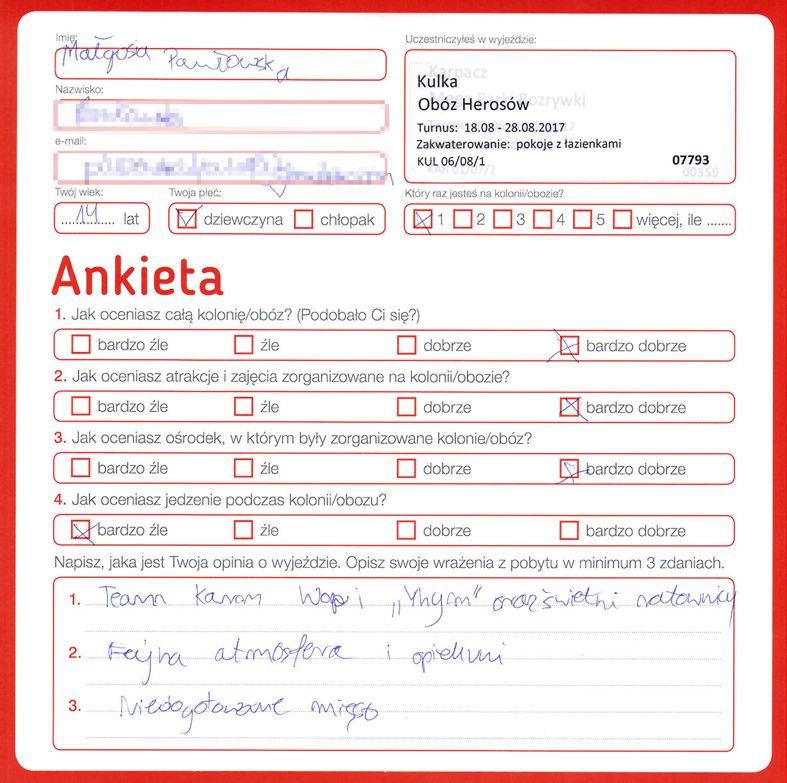 Imię:
Małgosia Pawłowska
Nazwisko:
e-mail:
Twój wiek:
14 lat
Twoja płeć:
dziewczyna chłopak
Uczestniczyłeś w wyjeździe:
Karpacz
Kulka
Obóz Herosów
Turnus: 18.08 - 28.08.2017
Zakwaterowanie: pokoje z łazienkami
KUL 06/08/1 07793
00359
Który raz jesteś na kolonii/obozie?
1 2 3 4 5 więcej, ile .......
Ankieta
1. Jak oceniasz całą kolonię/obóz? (Podobało Ci się?)
bardzo źle źle dobrze bardzo dobrze
2. Jak oceniasz atrakcje i zajęcia zorganizowane na kolonii/obozie?
bardzo źle źle dobrze bardzo dobrze
3. Jak oceniasz ośrodek, w którym były zorganizowane kolonie/obóz?
bardzo źle źle dobrze bardzo dobrze
4. Jak oceniasz jedzenie podczas kolonii/obozu?
bardzo źle źle dobrze bardzo dobrze
Napisz, jaka jest Twoja opinia o wyjeździe. Opisz swoje wrażenia z pobytu w minimum 3 zdaniach.
1. Team i „Yhym" oraz świetni ratownicy
2. Fajna atmosfera i opiekuni
3. Niedogotowane mięso